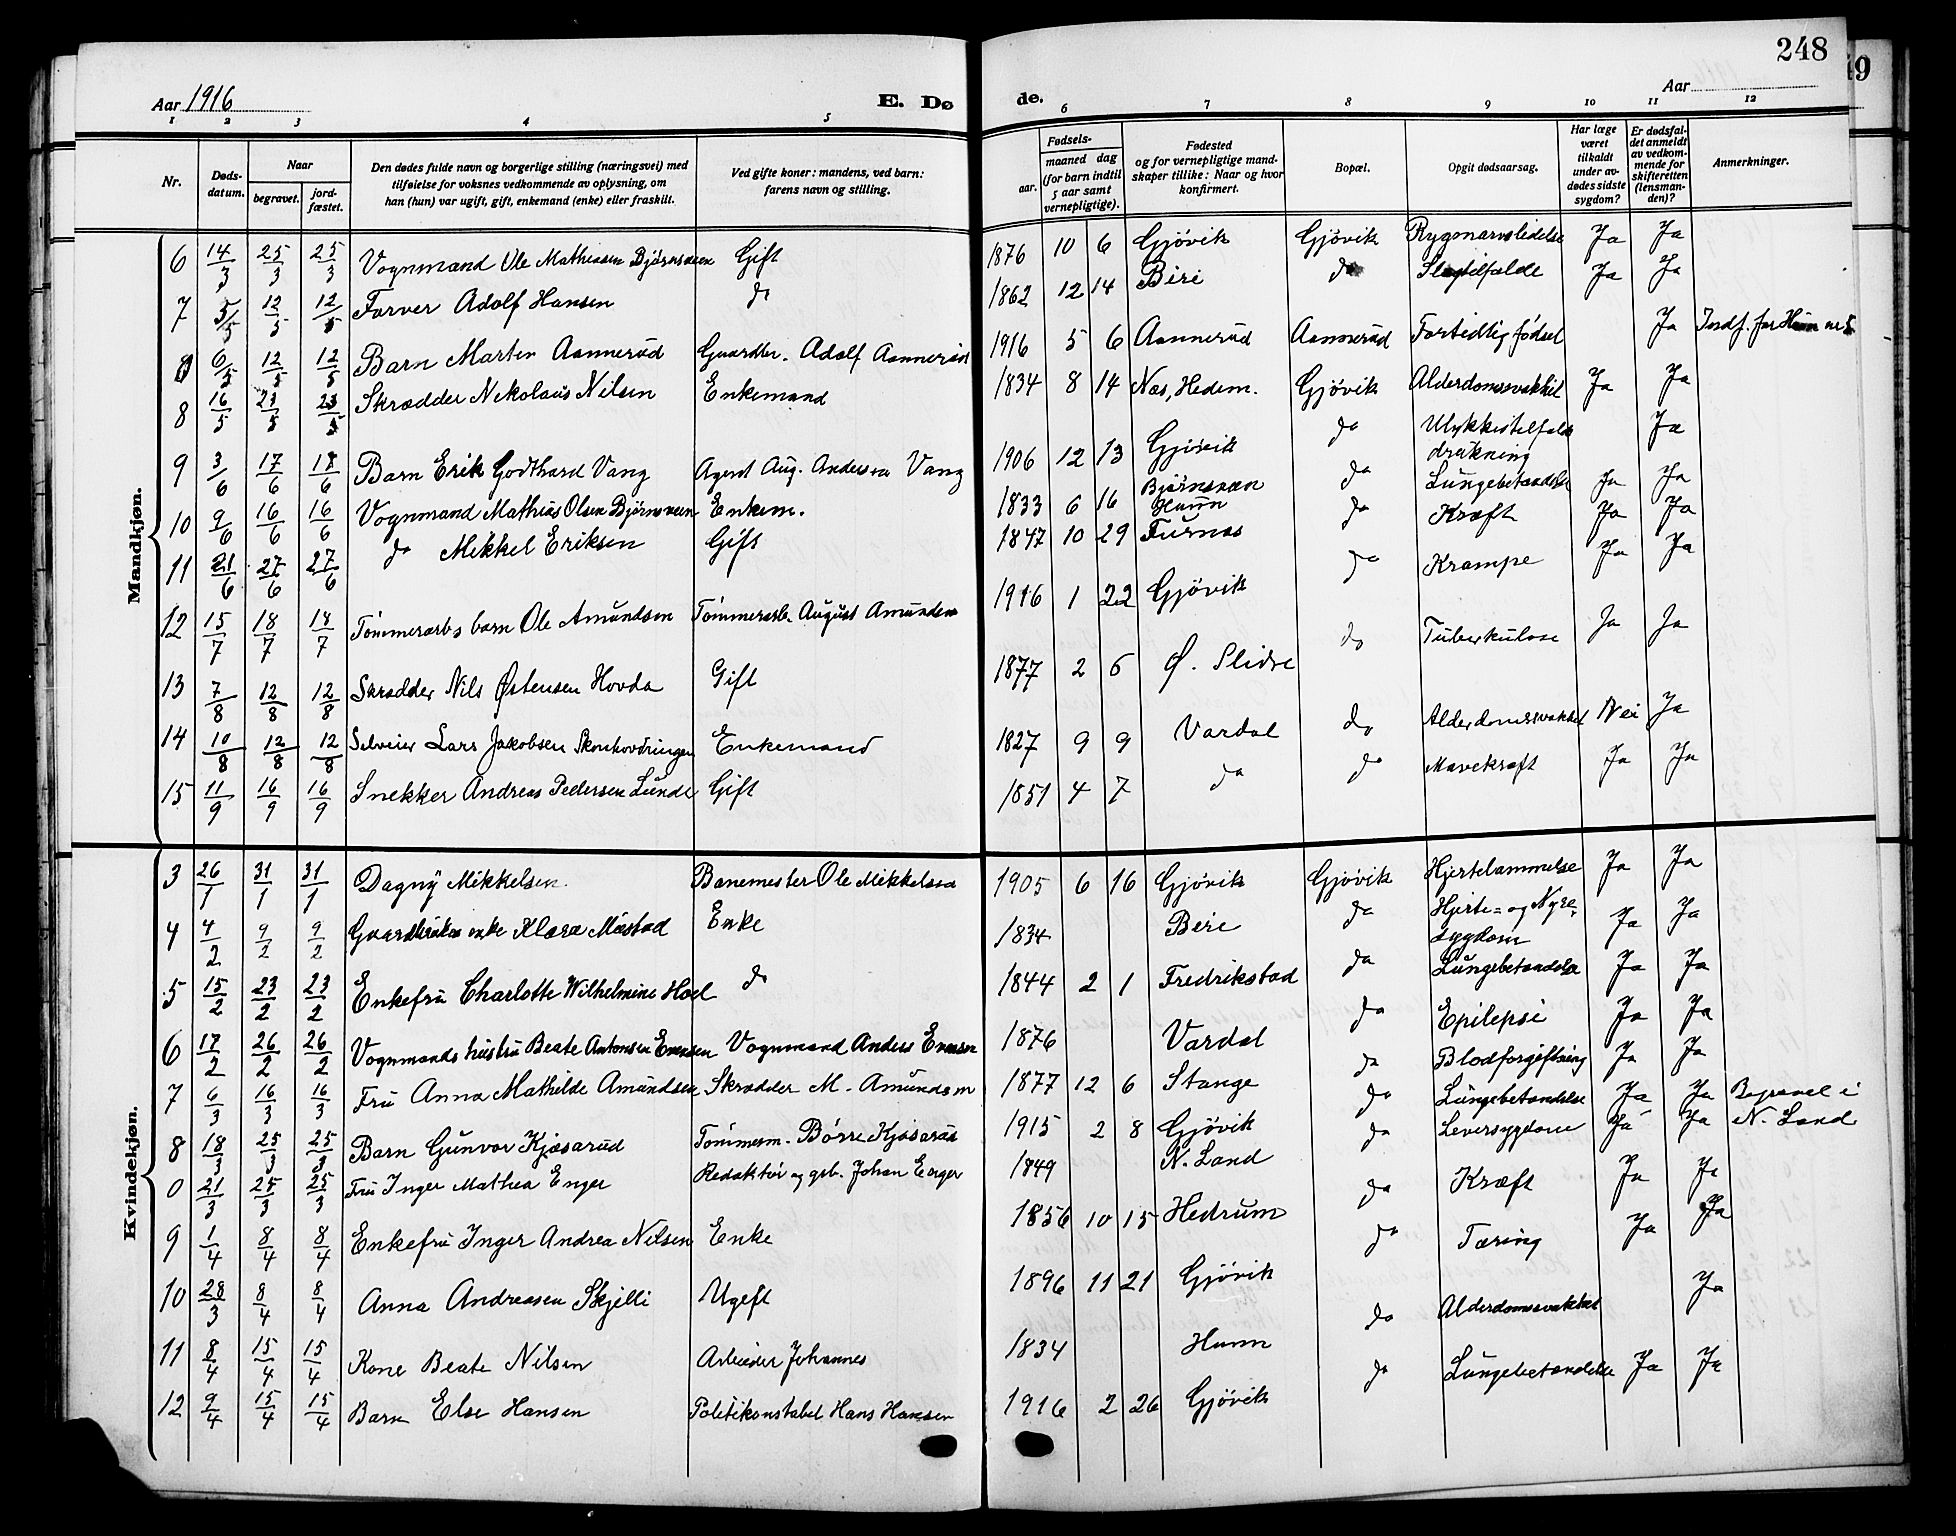 248
49
Aar 1916
E. Dø
de.
Aar
1 2 3 4 5 6 7 8 9 10 11 12
Nr.
Døds-
datum.
Naar
begravet.
jord-
fæstet.
Den dødes fulde navn og borgerlige stilling (næringsvei) med
tilføielse for voksnes vedkommende av oplysning, om
han (hun) var ugift, gift, enkemand (enke) eller fraskilt.
Ved gifte koner: mandens, ved barn:
farens navn og stilling.
Fødsels-
aar.
maaned dag
(for barn indtil
5 aar samt
vernepligtige).
Fødested
og for vernepligtige mand-
skaper tillike: Naar og hvor
konfirmert.
Bopæl.
Opgit dødsaarsag.
Har læge
været
tilkaldt
under av-
dødes sidste
sygdom?
Er dødsfal-
det anmeldt
av vedkom-
mende for
skifteretten
(lensman-
den)?
Anmerkninger.
Mandkjøn.
6 14/3 25/3 25/3 Vognmand Ole Mathiasen Bjørnsveen Gift 1876 10 6 Gjøvik Gjøvik Rygmarvslidelse Ja Ja
7 5/5 12/5 12/5 Farver Adolf Hansen do 1862 12 14 Biri do Slagtilfælde Ja Ja
0 6/5 12/5 12/5 Barn Martin Aannerud Gaardbr. Adolf Aannerud 1916 5 6 Aannerud Aannerud Fortidlig fødsel Ja Indf. for Hunn nr 5
8 16/5 23/5 23/5 Skrædder Nikolaus Nilsen Enkemand 1834 8 14 Næs, Hedem. Gjøvik Alderdomssvakhet Ja Ja
9 3/6 17/6 17/6 Barn Erik Godthard Vang Agent Aug. Anderssen Vang 1906 12 13 Gjøvik do Ulykkestilfælde
drukning Ja
10 9/6 16/6 16/6 Vognmand Mathias Olsen Bjørnsveen Enkem. 1833 6 16 Bjørnsveen
Hunn do Lungebetændelse Ja Ja
11 21/6 27/6 27/6 do Mikkel Eriksen Gift 1847 10 29 Furnes do Kræft Ja Ja
12 15/7 18/7 18/7 Tømmerarbs barn Ole Amundsen Tømmerarb. August Amundsen 1916 1 22 Gjøvik do Krampe Ja Ja
13 7/8 12/8 12/8 Skrædder Nils Østensen Hovda Gift 1877 2 6 Ø. Slidre do Tuberkulose Ja Ja
14 10/8 12/8 12/8 Selveier Lars Jakobsen Skonhovdringen Enkemand 1827 9 9 Vardal do Alderdomssvakhet Nei Ja
15 11/9 16/9 16/9 Snekker Andreas Pedersen Lunde Gift 1851 4 7 da do Mavekræft Ja Ja
Kvindekjøn.
3 26/1 31/1 31/1 Dagny Mikkelsen. Banemester Ole Mikkelsen 1905 6 16 Gjøvik Gjøvik Hjertelammelse Ja Ja
4 4/2 9/2 9/2 Gaardbruker enke Klara Mustad Enke 1834 Biri do Hjerte- og Nyre-
sygdom Ja Ja
5 15/2 23/2 23/2 Enkefru Charlotte Wilhelmine Hoel do 1844 2 1 Fredrikstad do Lungebetændelse Ja Ja
6 17/2 26/2 26/2 Vognmands hustru Beate Antonsen Evensen Vognmand Anders Evensen 1876 Vardal do Epilepsi Ja Ja
7 6/3 16/3 16/3 Fru Anna Mathilde Amundsen Skrædder M. Amundsen 1877 12 6 Stange do Blodforgiftning Ja Ja
8 18/3 25/3 25/3 Barn Gunvor Kjøsarud Tømmerm. Børre Kjøsarud 1915 2 8 Gjøvik do Lungebetændelse Ja Ja
0 21/3 25/3 25/3 Fru Inger Mathea Enger Redaktør og grb. Johan Enger 1849 N. Land do Leversygdom Ja Ja Begravet i
N. Land
9 1/4 8/4 8/4 Enkefru Inger Andrea Nilsen Enke 1856 10 15 Hedrum do Kræft Ja Ja
10 28/3 8/4 8/4 Anna Andreasen Skjelli Ugift 1896 11 21 Gjøvik do Tæring Ja Ja
11 8/4 15/4 15/4 Kone Beate Nilsen Arbeider Johannes 1834 Hunn do Alderdomssvakhet Ja
12 9/4 15/4 15/4 Barn Else Hansen Politikonstabel Hans Hansen 1916 2 26 Gjøvik do Lungebetændelse Ja Ja